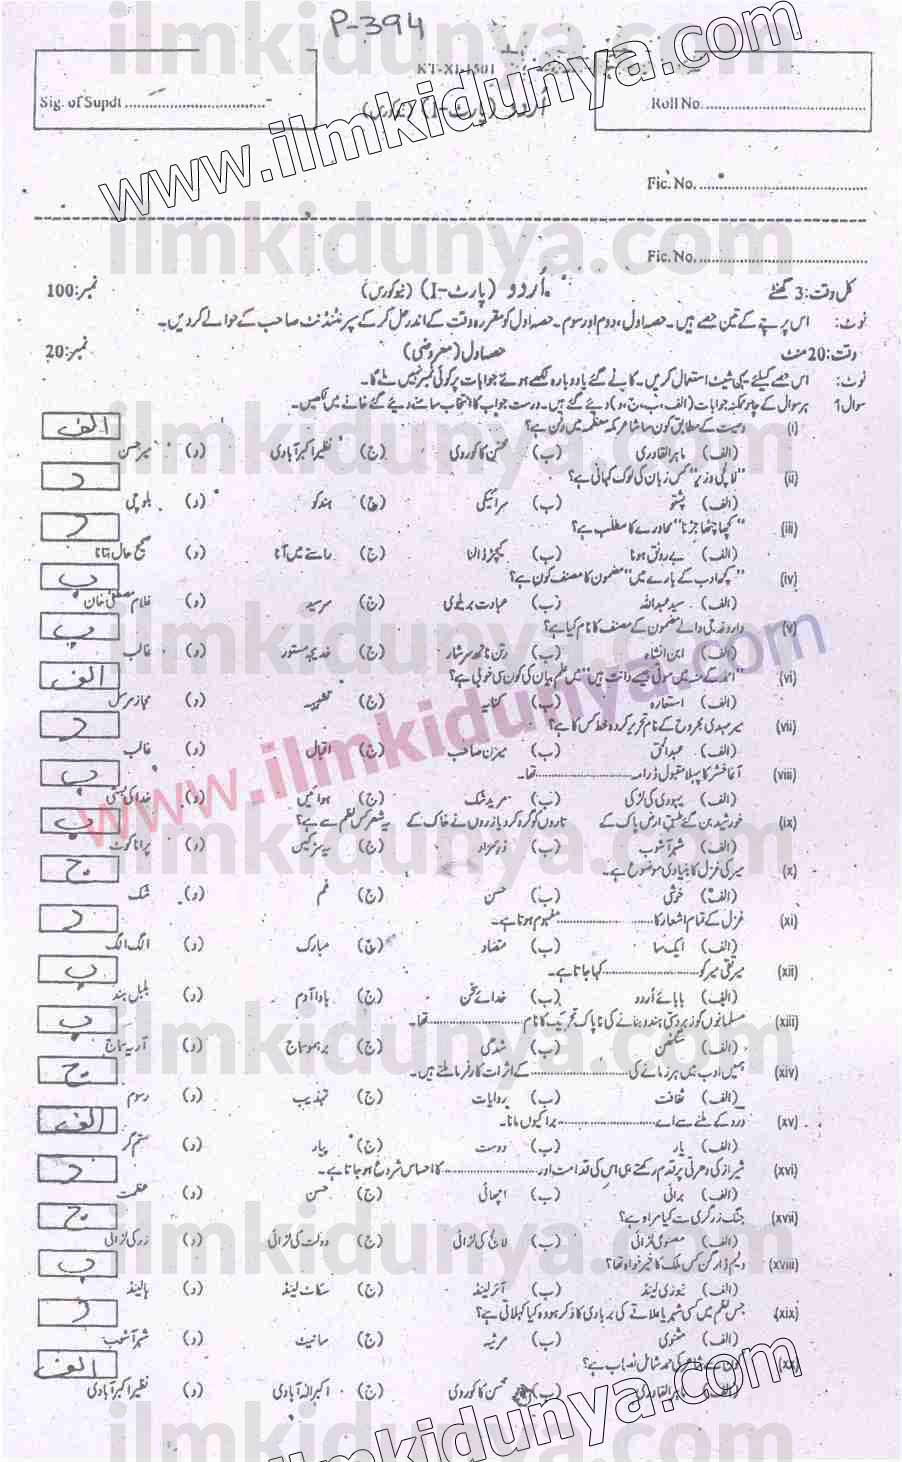 P-394
KT-XI-1501
Sig. of Supdt
Roll No.
اُردو (پارٹ-I) (نیوکورس)
Fic. No.
Fic. No.
کل وقت: 3 گھنٹے اُردو (پارٹ-I) (نیوکورس) نمبر: 100
نوٹ: اس پرچے کے تین حصے ہیں۔ حصہ اول، دوم اور سوم۔ حصہ اول کو مقررہ وقت کے اندر حل کر کے سپرنٹنڈنٹ صاحب کے حوالے کر دیں۔
وقت: 20 منٹ حصہ اول (معروضی) نمبر: 20
نوٹ: اس حصے کیلئے یہی شیٹ استعمال کریں۔ کاٹے گئے یا دوبارہ لکھے ہوئے جوابات پر کوئی نمبر نہیں ملے گا۔
سوال 1 ہر سوال کے چار ممکنہ جوابات (الف، ب، ج، د) دیئے گئے ہیں۔ درست جواب کا انتخاب سامنے دیئے گئے خانے میں لکھیں۔
(i) وصیت کے مطابق کون سا شاعر مکہ معظمہ میں دفن ہے؟ الف
(الف) ماہر القادری (ب) محسن کاکوروی (ج) نظیر اکبر آبادی (د) میر حسن
(ii) "لالچی وزیر" کس زبان کی لوک کہانی ہے؟ د
(الف) پشتو (ب) سرائیکی (ج) ہندکو (د) بلوچی
(iii) "کچا چٹھا جڑنا" محاورے کا مطلب ہے؟ د
(الف) بے رونق ہونا (ب) کیچڑ ڈالنا (ج) راستے میں آنا (د) صحیح حال بتانا
(iv) "کچھ ادب کے بارے میں" مضمون کا مصنف کون ہے؟ ب
(الف) سید عبداللہ (ب) عبادت بریلوی (ج) سرسید (د) غلام مصطفیٰ خان
(v) داروغہ جی والے مضمون کے مصنف کا نام کیا ہے؟ ب
(الف) ابن انشاء (ب) رتن ناتھ سرشار (ج) خدیجہ مستور (د) غالب
(vi) "انار کے منہ میں موتی جیسے دانت ہیں" میں علم بیان کی کون سی خوبی ہے؟ الف
(الف) استعارہ (ب) کنایہ (ج) تشبیہ (د) مجاز مرسل
(vii) میر مہدی مجروح کے نام تحریر کردہ خط کس کا ہے؟ د
(الف) عبدالحق (ب) میرن صاحب (ج) اقبال (د) غالب
(viii) آغا حشر کا پہلا مقبول ڈرامہ .................... تھا۔ ب
(الف) یہودی کی لڑکی (ب) مرید شک (ج) ہوائیں (د) خدا کی بستی
(ix) خورشید بن گئے طبق ارض پاک کے تاروں کو گرد کر دیا ذروں نے خاک کے یہ شعر کس نظم سے ہے؟ ب
(الف) شہر آشوب (ب) (ج) (د) پرانا کوٹ
(x) میر کی غزل کا بنیادی موضوع ہے۔ ج
(الف) خوشی (ب) حسن (ج) غم (د) شک
(xi) غزل کے تمام اشعار کا .................... مفہوم ہوتا ہے۔ د
(الف) ایک سا (ب) متضاد (ج) مبارک (د) الگ الگ
(xii) میر تقی میر کو .................... کہا جاتا ہے۔ ب
(الف) بابائے اُردو (ب) خدائے سخن (ج) باوا آدم (د) بلبل ہند
(xiii) مسلمانوں کو زبردستی ہندو بنانے کی ناپاک تحریک کا نام .................... تھا۔ ب
(الف) سنگٹھن (ب) شدھی (ج) برہمو سماج (د) آریہ سماج
(xiv) ہمیں ادب میں ہر زمانے کی .................... کے اثرات کارفرما ملتے ہیں۔ ج
(الف) ثقافت (ب) روایات (ج) تہذیب (د) رسوم
(xv) درد کے ملنے سے اے .................... برا کیوں مانا۔ الف
(الف) یار (ب) دوست (ج) پیار (د) ستم گر
(xvi) شیراز کی دھرتی پر قدم رکھتے ہی اس کی قدامت اور .................... کا احساس شروع ہو جاتا ہے۔ د
(الف) برائی (ب) اچھائی (ج) حسن (د) عظمت
(xvii) جنگ زرگری سے کیا مراد ہے؟ ج
(الف) مصنوعی لڑائی (ب) لالچ کی لڑائی (ج) دولت کی لڑائی (د) زر کی لڑائی
(xviii) ولیم ڈارگن کس ملک کا خیر خواہ تھا؟ ب
(الف) نیوزی لینڈ (ب) آئرلینڈ (ج) سکاٹ لینڈ (د) ہالینڈ
(xix) جس نظم میں کسی شہر یا علاقے کی بربادی کا ذکر ہو وہ کیا کہلاتی ہے؟ د
(الف) مثنوی (ب) مرثیہ (ج) سانیٹ (د) شہر آشوب
(xx) کون سے شاعر کی حمد شامل نصاب ہے؟ الف
(الف) ماہر القادری (ب) محسن کاکوروی (ج) اکبر الٰہ آبادی (د) نظیر اکبر آبادی
www.ilmkidunya.com
www.ilmkidunya.com
www.ilmkidunya.com
ilmkidunya.com
ilmkidunya.com
ilmkidunya.com
ilmkidunya.com
ilmkidunya.com
ilmkidunya.com
ilmkidunya.com
ilmkidunya.com